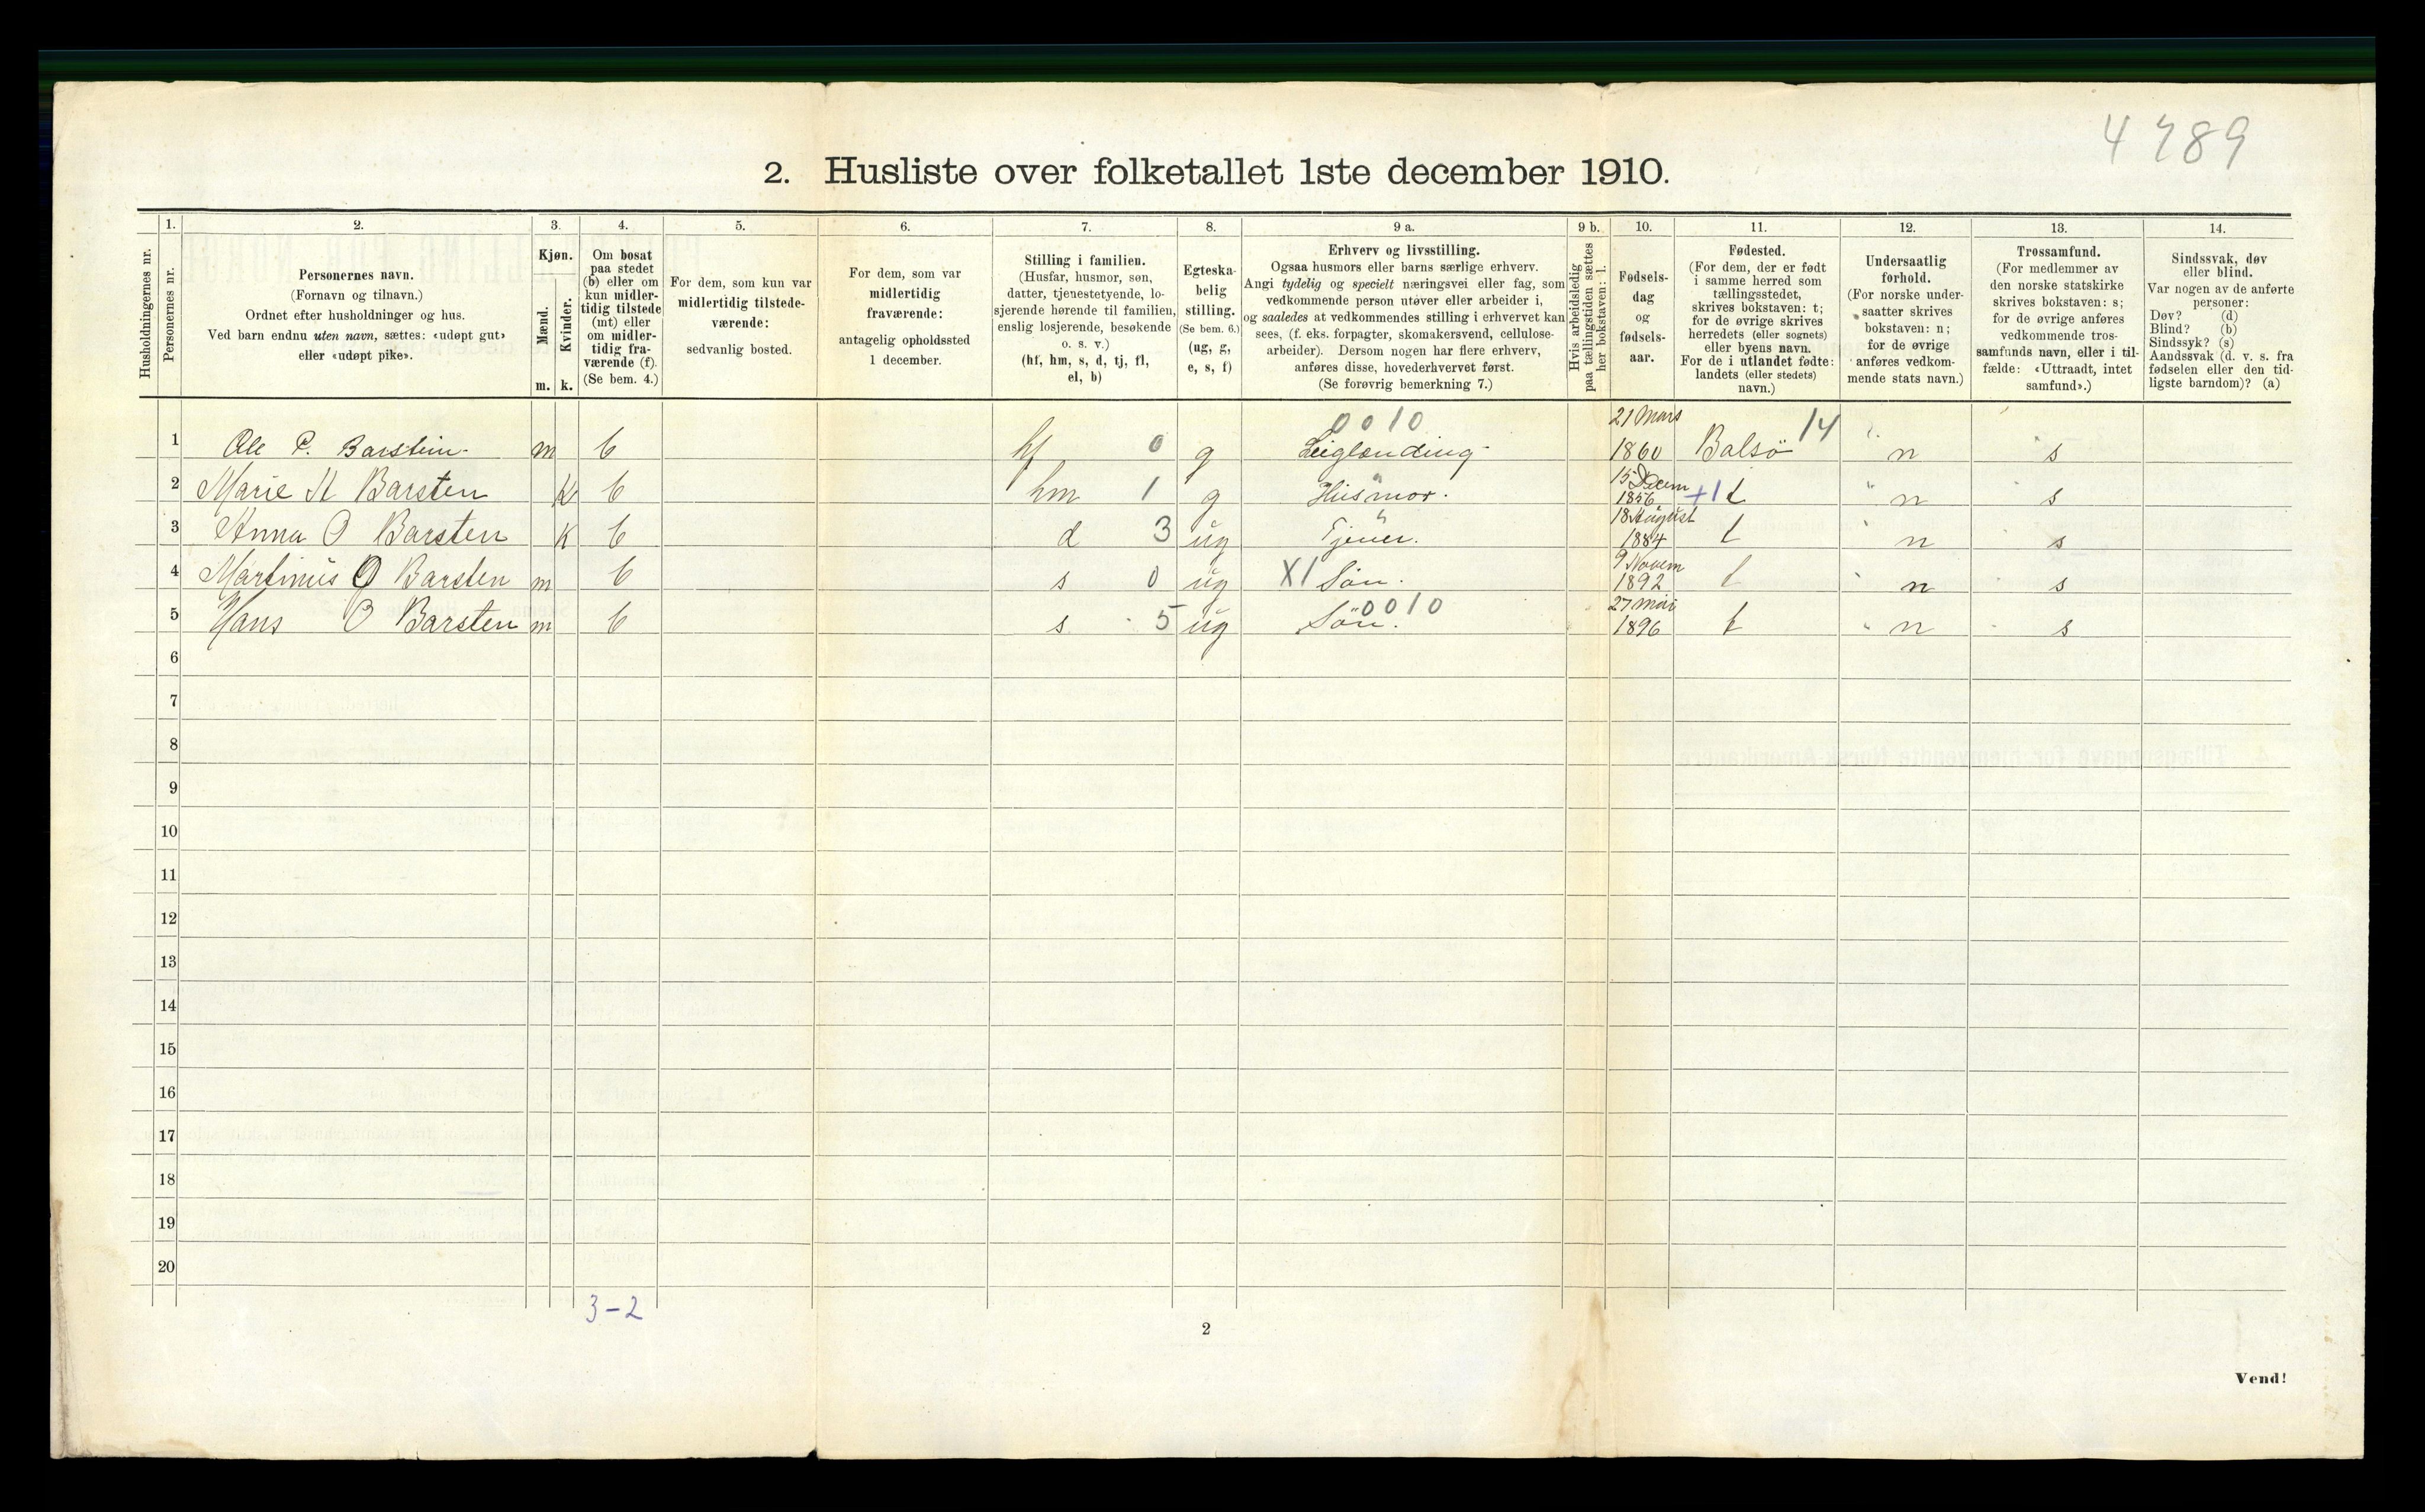 4789
2. Husliste over folketallet 1ste december 1910.
Husholdningernes nr.
1.
Personernes nr.
2.
Personernes navn.
(Fornavn og tilnavn.)
Ordnet efter husholdninger og hus.
Ved barn endnu uten navn, sættes: «udøpt gut»
eller «udøpt pike».
3.
Kjøn.
Mænd.
Kvinder.
m. k.
4.
Om bosat
paa stedet
(b) eller om
kun midler-
tidig tilstede
(mt) eller
om midler-
tidig fra-
værende (f).
(Se bem. 4.)
5.
For dem, som kun var
midlertidig tilstede-
værende:
sedvanlig bosted.
6.
For dem, som var
midlertidig
fraværende:
antagelig opholdssted
1 december.
7.
Stilling i familien.
(Husfar, husmor, søn,
datter, tjenestetyende, lo-
sjerende hørende til familien,
enslig losjerende, besøkende
o. s. v.)
(hf, hm, s, d, tj, fl,
el, b)
8.
Egteska-
belig
stilling.
(Se bem. 6.)
(ug, g,
e, s, f)
9 a.
Erhverv og livsstilling.
Ogsaa husmors eller barns særlige erhverv.
Angi tydelig og specielt næringsvei eller fag, som
vedkommende person utøver eller arbeider i,
og saaledes at vedkommendes stilling i erhvervet kan
sees, (f. eks. forpagter, skomakersvend, cellulose-
arbeider). Dersom nogen har flere erhverv,
anføres disse, hovederhvervet først.
(Se forøvrig bemerkning 7.)
9 b.
Hvis arbeidsledig
paa tællingstiden sættes
her bokstaven: l.
10.
Fødsels-
dag
og
fødsels-
aar.
11.
Fødested.
(For dem, der er født
i samme herred som
tællingsstedet,
skrives bokstaven: t;
for de øvrige skrives
herredets (eller sognets)
eller byens navn.
For de i utlandet fødte:
landets (eller stedets)
navn.)
12.
Undersaatlig
forhold.
(For norske under-
saatter skrives
bokstaven: n;
for de øvrige
anføres vedkom-
mende stats navn.)
13.
Trossamfund.
(For medlemmer av
den norske statskirke
skrives bokstaven: s;
for de øvrige anføres
vedkommende tros-
samfunds navn, eller i til-
fælde: «Uttraadt, intet
samfund».)
14.
Sindssvak, døv
eller blind.
Var nogen av de anførte
personer:
Døv? (d)
Blind? (b)
Sindssyk? (s)
Aandssvak (d. v. s. fra
fødselen eller den tid-
ligste barndom)? (a)
0010 21 Mars 14
1 Ole P. Barstein m b hf 0 g Leiglænding 1860 Balsö n s
15 Decem
2 Marie K Barsten K b hm 1 g Husmor. 1856 +1 t n s
18 August
3 Anna O Barsten K b d 3 ug Tjener. 1884 t n s
9 Novem
4 Martinus O Barsten m b s 0 ug X1 Sön. 1892 t n s
0010 27 mai
5 Hans O Barsten m b s 5 ug Sön. 1896 t n s
6
7
8
9
10
11
12
13
14
15
16
17
18
19
20
3-2
2
Vend!